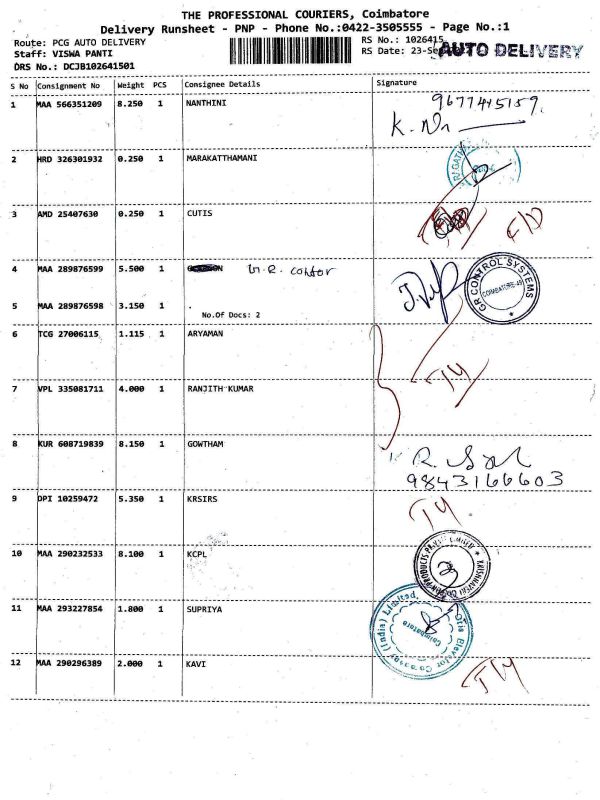 THE PROFESSIONAL COURIERS, Coimbatore
Delivery Runsheet - PNP - Phone No.:0422-3505555 - Page No.:1
Route: PCG AUTO DELIVERY
RS No.: 1026415
Staff: VISWA PANTI
RS Date: 23-Se
AUTO DELIVERY
DRS No.: DCJB102641501
S No Consignment No Weight PCS Consignee Details Signature
1 MAA 566351209 8.250 1 NANTHINI 9677445159.
2 HRD 326301932 0.250 1 MARAKATTHAMANI
3 AMD 25407630 0.250 1 CUTIS
4 MAA 289876599 5.500 1 G.R. contor
GR CONTROL SYSTEMS
COIMBATORE-49
5 MAA 289876598 3.150 1 .
No.Of Docs: 2
6 TCG 27006115 1.115 1 ARYAMAN
7 VPL 335081711 4.000 1 RANJITH KUMAR
8 KUR 608719839 8.150 1 GOWTHAM
9843166603
9 OPI 10259472 5.350 1 KRSIRS
10 MAA 290232533 8.100 1 KCPL
11 MAA 293227854 1.800 1 SUPRIYA
Otis Elevator Company (India) Limited,
Coimbatore
12 MAA 290296389 2.000 1 KAVI